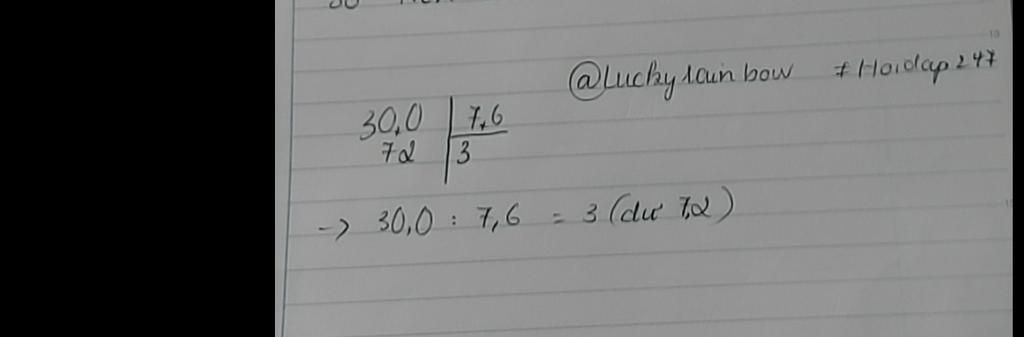 @Luckyrainbow #Hoidap247
30,0 7,6
72 3
-> 30,0 : 7,6 = 3 (dư 7,2)